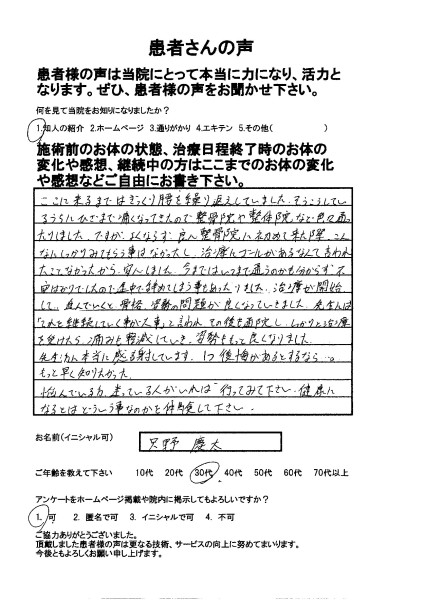 患者さんの声
患者様の声は当院にとって本当に力になり、活力と
なります。ぜひ、患者様の声をお聞かせ下さい。
何を見て当院をお知りになりましたか?
1.知人の紹介 2.ホームページ 3.通りがかり 4.エキテン 5.その他( )
施術前のお体の状態、治療日程終了時のお体の
変化や感想、継続中の方はここまでのお体の変化
や感想などご自由にお書き下さい。
ここに来るまではぎっくり腰を繰り返えしていました。そうこうしてい
るうちにひざまで痛くなってきたので整骨院や整体院など色々通
ったりしました。ですが、よくならず良い整骨院に初めて来た際、こん
なにしっかりみてもらう事はなかったし、治療にゴールがあるなんて言われ
たことなかったから、安心しました。今まではいつまで通うのかも分からず、不
安ばかりでしたので途中で辞めてしまう事もありました。治療が開始
して、進んでいくと、骨格、姿勢の問題が良くなっていきました。先生には
「これを継続していく事が大事」と言われ、その後も通院し、しっかりと治療
を受けたら、痛みも軽減していき、姿勢ももっと良くなりました。
先生方に本当に感謝しています。1つ後悔があるとするなら…。
もっと早く知りたかった。
悩んでいる方、迷っている人がいれば行ってみて下さい。健康に
なるとはどういう事なのかを体験して下さい。
お名前(イニシャル可) 只野 慶太
ご年齢を教えて下さい 10代 20代 30代 40代 50代 60代 70代以上
アンケートをホームページ掲載や院内に掲示してもよろしいですか?
1. 可 2. 匿名で可 3. イニシャルで可 4. 不可
ご協力ありがとうございました。
頂戴しました患者様の声は更なる技術、サービスの向上に努めてまいります。
今後ともよろしくお願い申し上げます。